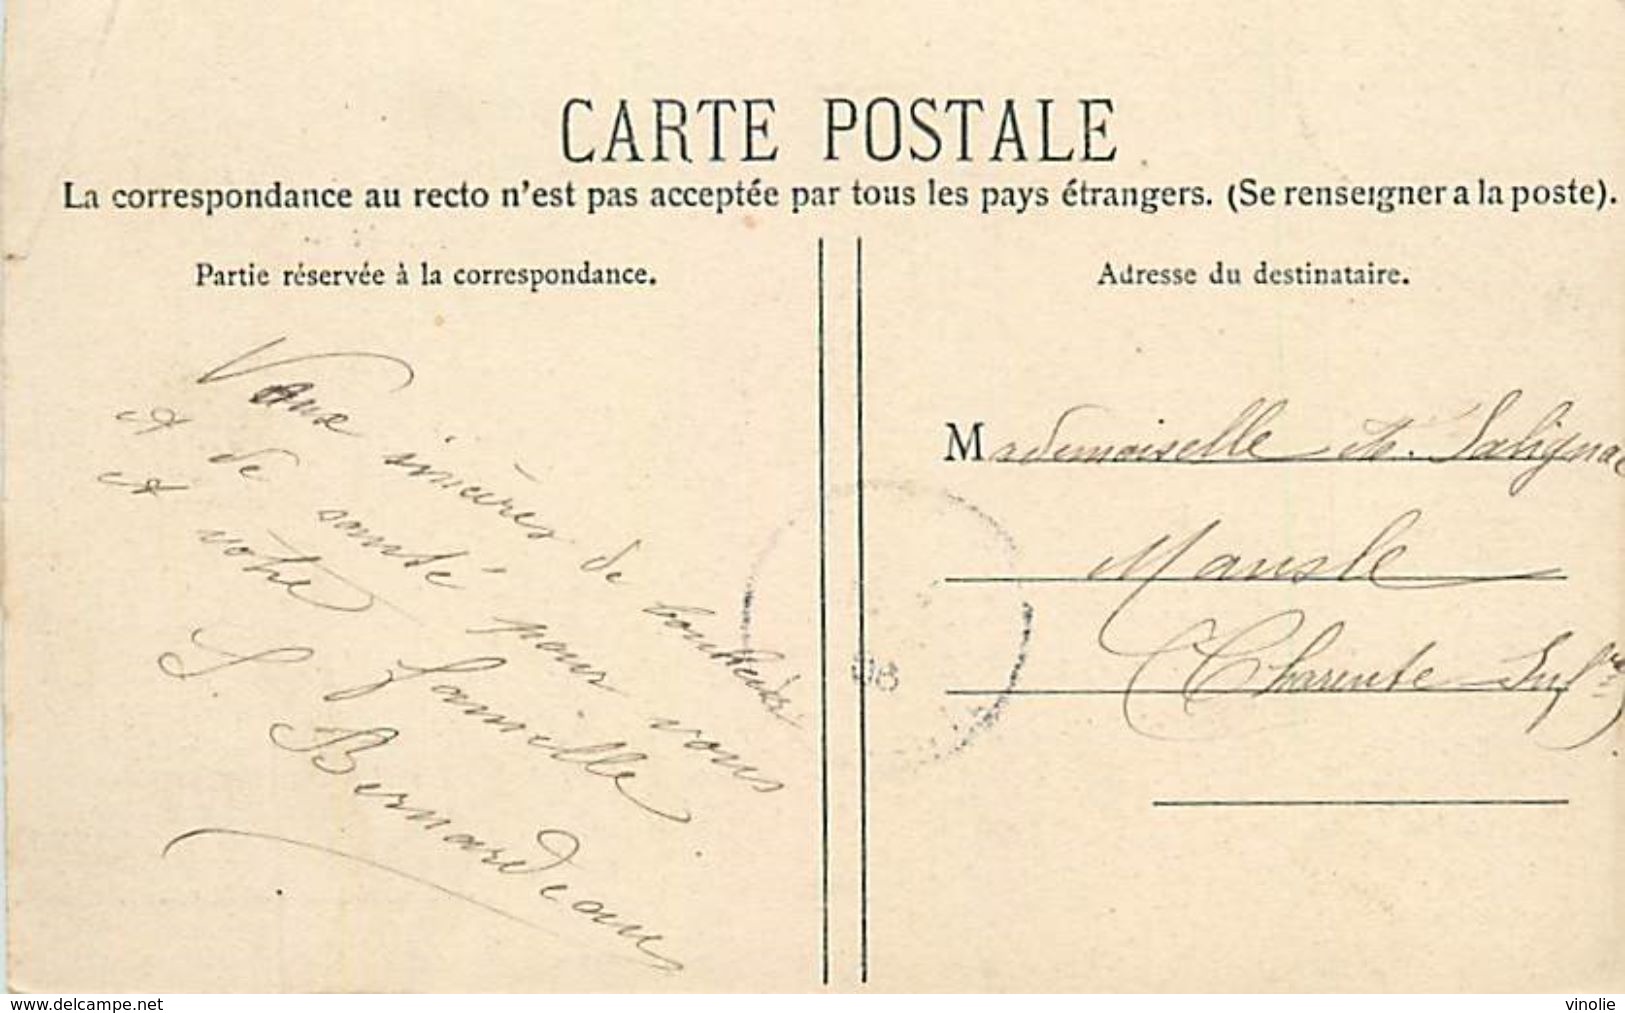 CARTE POSTALE
La correspondance au recto n'est pas acceptée par tous les pays étrangers. (Se renseigner a la poste).
Partie réservée à la correspondance.
Vœux sincères de bonheur
et de santé pour vous
et votre famille.
S. Bernardeau
Adresse du destinataire.
Mademoiselle Salignac
Mansle
(Charente Infre)
08
www.delcampe.net
vinolie